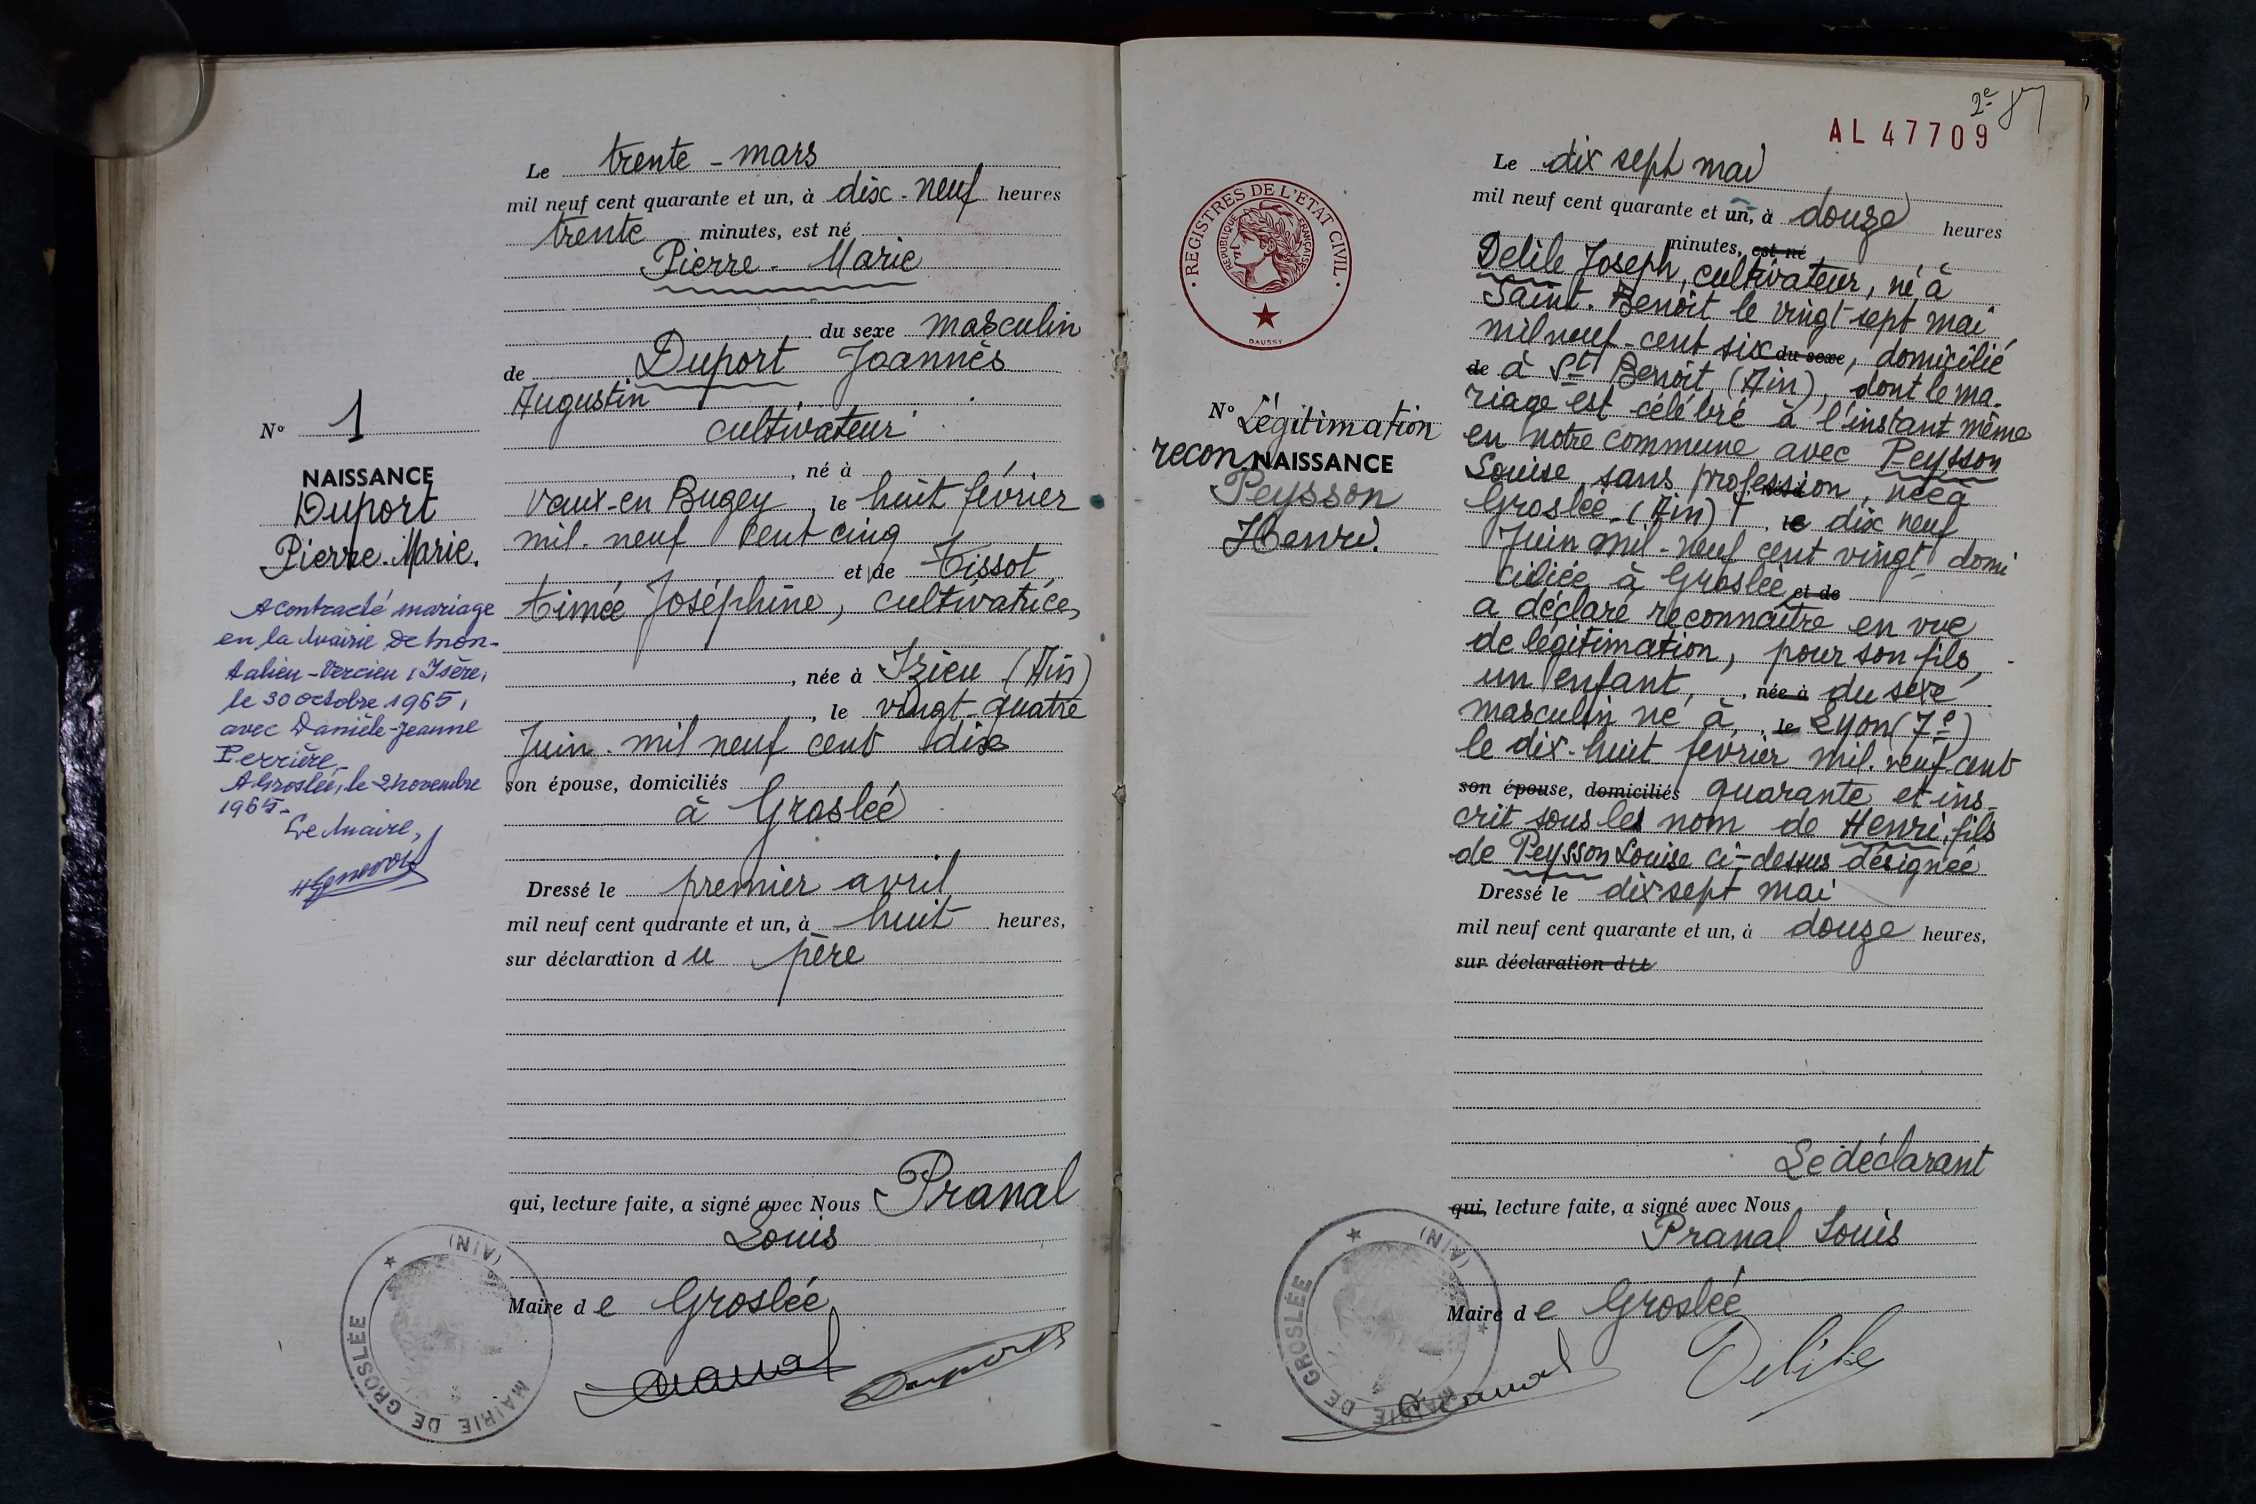 Le trente - mars
mil neuf cent quarante et un, à dix - neuf heures
trente minutes, est né
Pierre - Marie
du sexe masculin
de Duport Joannès
Augustin
cultivateur
, né à
Vaux-en Bugey, le huit février
mil - neuf cent cinq
et de Tissot
Aimée Joséphine, cultivatrice,
, née à Izieu (Ain)
, le vingt-quatre
Juin - mil neuf cent dix
son épouse, domiciliés
à Groslée
Dressé le premier avril
mil neuf cent quarante et un, à huit heures,
sur déclaration du père
qui, lecture faite, a signé avec Nous Pranal
Louis
Maire de Groslée
Pranal
Duport
N° 1
NAISSANCE
Duport
Pierre-Marie.
A contracté mariage
en la Mairie de Mon-
talieu-Vercieu (Isère)
le 30 octobre 1965,
avec Danièle-Jeanne
Perrière.
A Groslée, le 2 novembre
1965.
Le Maire,
MAIRIE DE GROSLÉE
(AIN)
2e
AL 47709
REGISTRES DE L'ETAT CIVIL
REPUBLIQUE FRANÇAISE
DAUSSY
N° Légitimation
recon NAISSANCE
Peysson
Henri.
Le dix sept mai
mil neuf cent quarante et un, à douze heures
minutes, est né
Delile Joseph, cultivateur, né à
Saint-Benoît le vingt-sept mai
mil neuf-cent six du sexe, domicilié
de à St Benoit (Ain), dont le ma-
riage est célébré à l'instant même
en notre commune avec Peysson
Louise, sans profession, née à
Groslée (Ain), le dix neuf
Juin mil-neuf cent vingt domi
ciliée à Groslée et de
a déclaré reconnaître en vue
de légitimation, pour son fils,
un enfant, née à du sexe
masculin né à le Lyon (7e)
le dix-huit février mil-neuf-cent
son épouse, domiciliés quarante et ins-
crit sous les nom de Henri, fils
de Peysson Louise ci-dessus désignée
Dressé le dix sept mai
mil neuf cent quarante et un, à douze heures,
sur déclaration du
Le déclarant
qui, lecture faite, a signé avec Nous
Pranal Louis
Maire de Groslée
Pranal
Delile
MAIRIE DE GROSLÉE
(AIN)